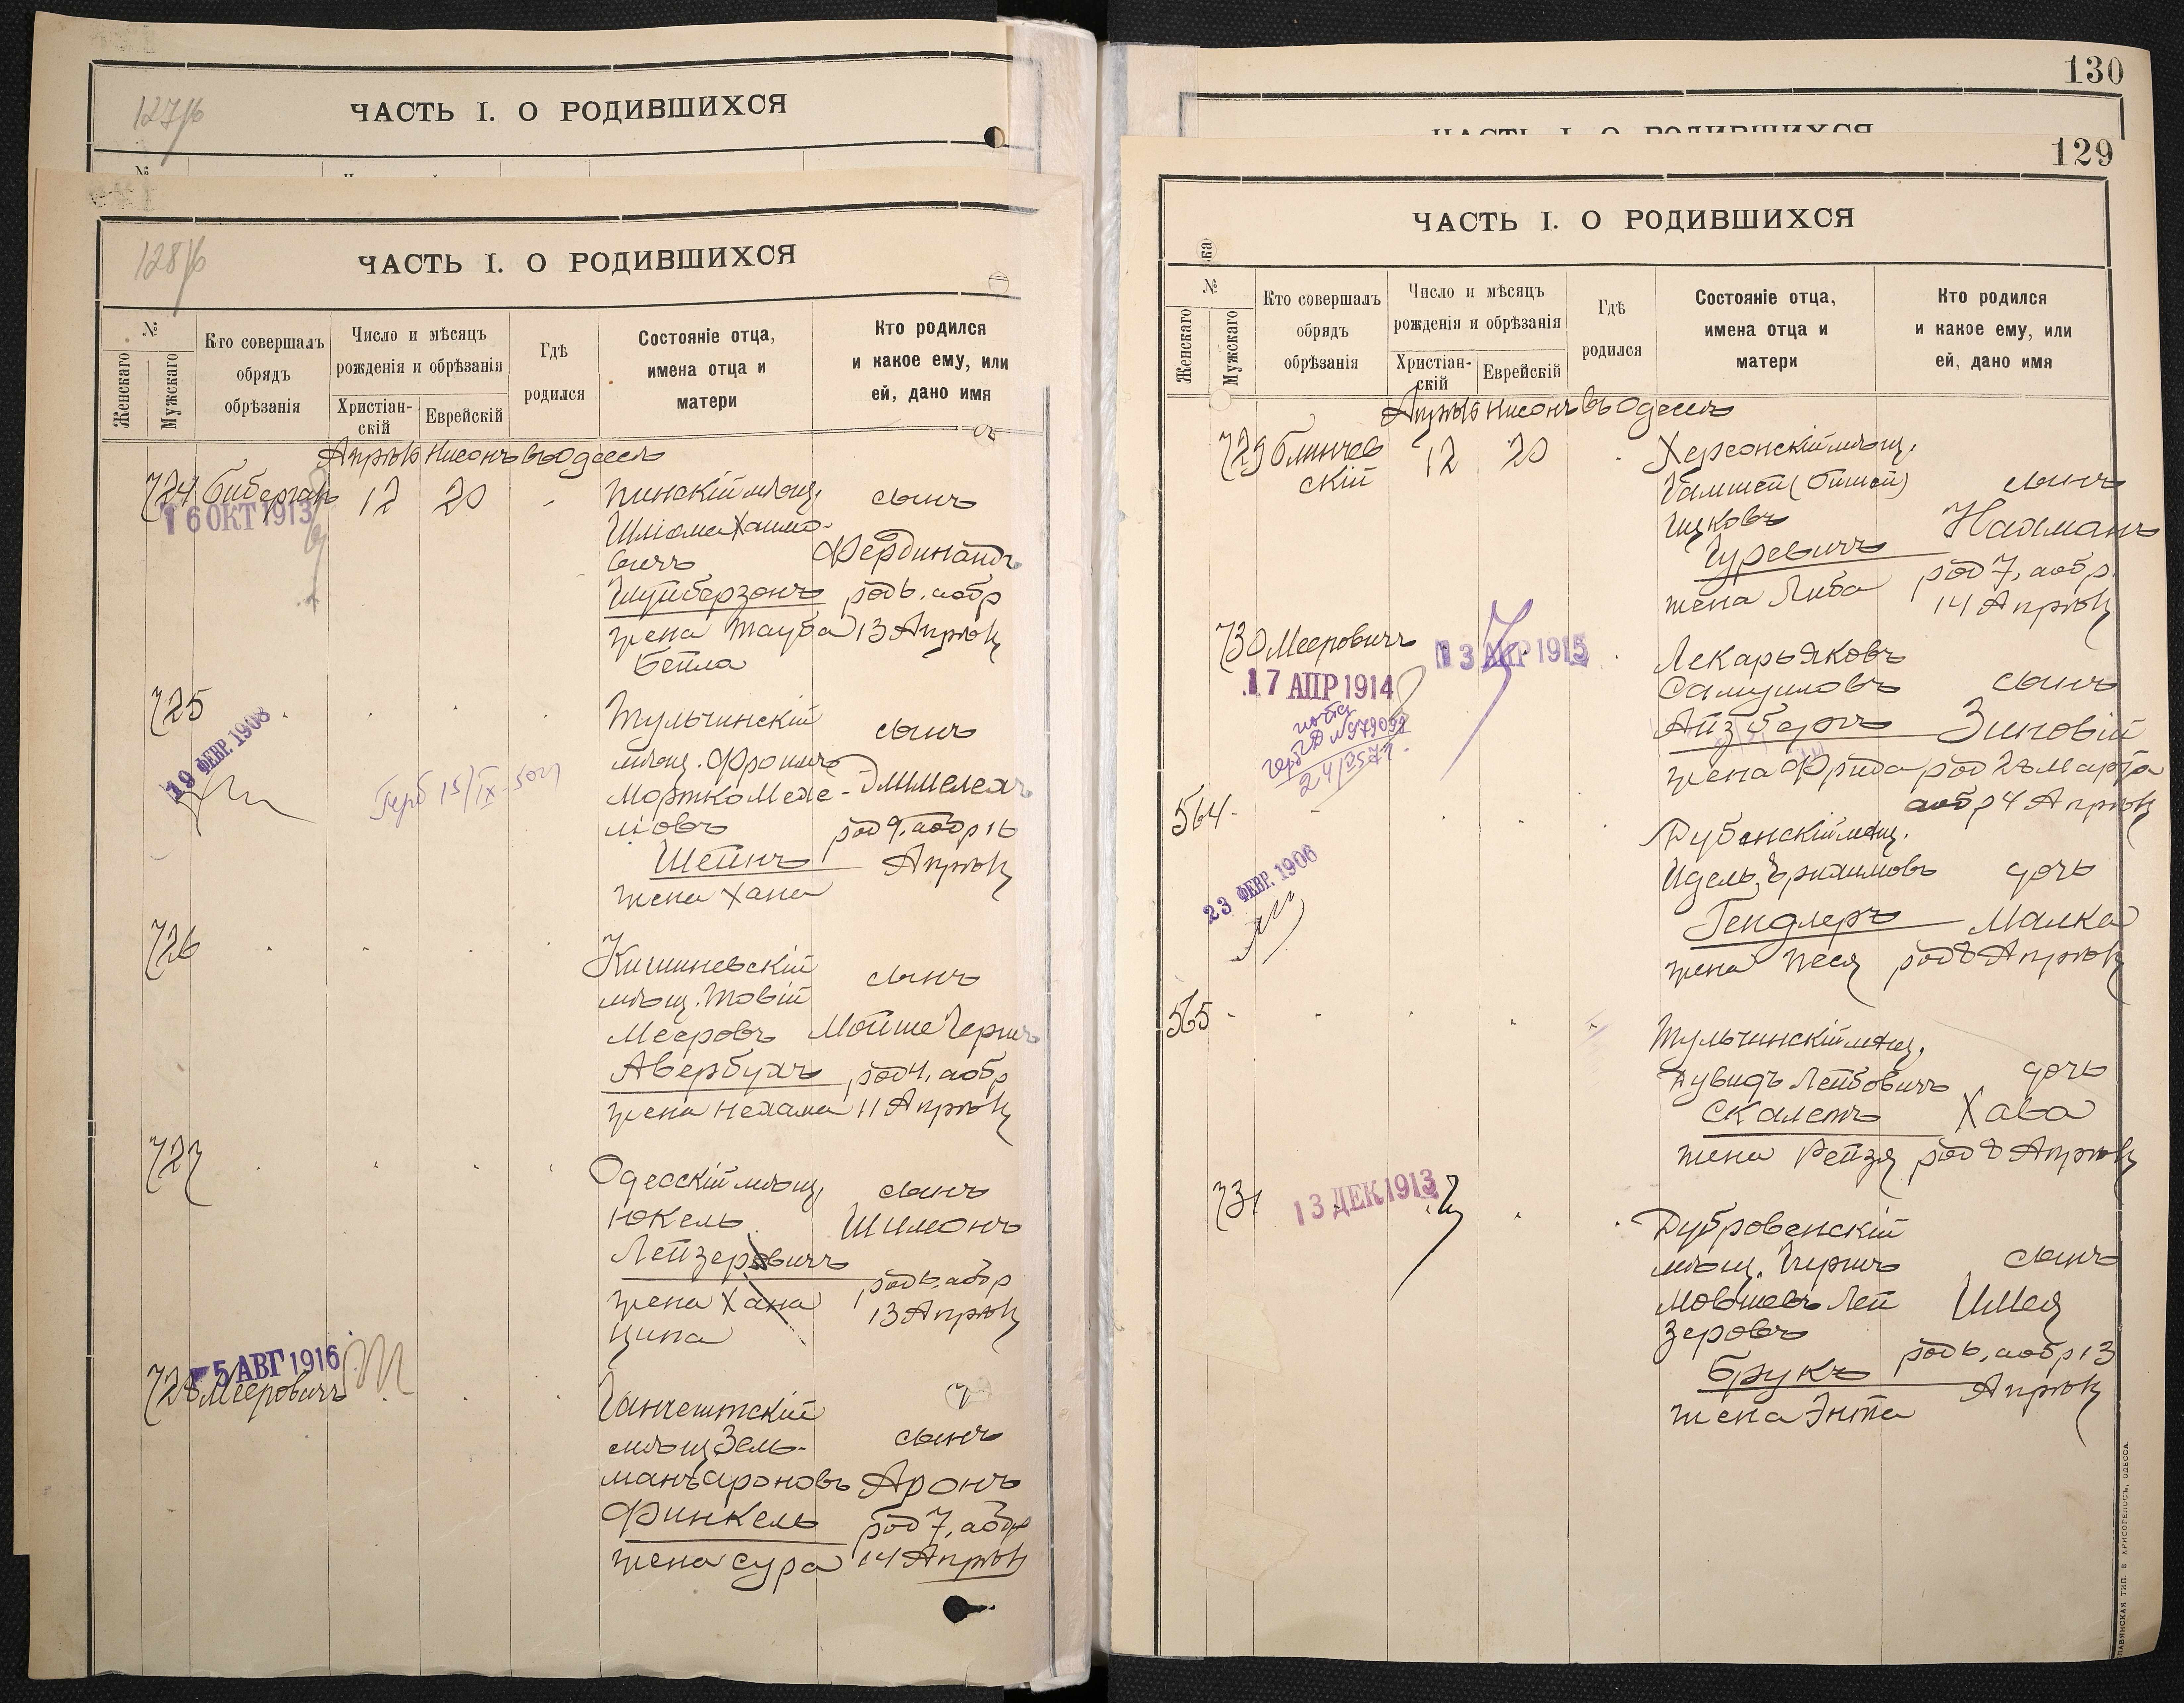 127/б
ЧАСТЬ I. О РОДИВШИХСЯ
№
128/б
ЧАСТЬ I. О РОДИВШИХСЯ
№
Женскаго
Мужскаго
Кто совершалъ
обрядъ
обрѣзанія
Число и мѣсяцъ
рожденія и обрѣзанія
Христіан-
скій
Еврейскій
Гдѣ
родился
Состояніе отца,
имена отца и
матери
Кто родился
и какое ему, или
ей, дано имя
Апрѣль Нисонъ въ Одессѣ
724 Биберган 12 20 -
16 ОКТ 1913
Пинскій мѣщ.
Шліома Хаимо-
вичъ
Шуйберзонъ
жена Тауба
Бейла
сынъ
Фердинандъ
род 6, а обр
13 Апрѣля
725
19 ФЕВР. 1908
Герб 15/IX
Тульчинскій
мѣщ. Фроимъ
Мортко Меле-
ховъ
Шейнъ
жена Хана
сынъ
Элимелехъ
род 9, а обр 16
Апрѣля
726
Кишиневскій
мѣщ. Товій
Мееровъ
Авербухъ
жена Нехама
сынъ
Мойше Гершъ
род 4, а обр
11 Апрѣля
727
Одесскій мѣщ.
Юкель
Лейзеровичъ
жена Хана
Ципа
сынъ
Шимонъ
род 6, а обр
13 Апрѣля
5 АВГ 1916
728 Мееровичъ
Ганчештскій
мѣщ Зель-
манъ Ароновъ
Финкель
жена Сура
сынъ
Аронъ
род 7, а обр
14 Апрѣля
130
ЧАСТЬ I. О РОДИВШИХСЯ
129
ЧАСТЬ I. О РОДИВШИХСЯ
ка
№
Женскаго
Мужскаго
Кто совершалъ
обрядъ
обрѣзанія
Число и мѣсяцъ
рожденія и обрѣзанія
Христіан-
скій
Еврейскій
Гдѣ
родился
Состояніе отца,
имена отца и
матери
Кто родился
и какое ему, или
ей, дано имя
Апрѣль Нисонъ въ Одессѣ
729 Блинчев
скій 12 20
Херсонскій мѣщ.
Гамшей
Ицковъ
Гуревичъ
жена Либа
сынъ
Нахманъ
род 7, а обр
14 Апрѣля
730 Мееровичъ
13 АПР 1915
17 АПР 1914
Лекарь Яковъ
Самуиловъ
Айзбергъ
жена Фрида
сынъ
Зиновій
род 28 Марта
а обр 4 Апрѣля
564
23 ФЕВР. 1906
Дубенскій мѣщ.
Идель Ерихимовъ
Гендлеръ
жена Песя
дочь
Малка
род 8 Апрѣля
565
Тульчинскій мѣщ.
Дувидъ Лейбовичъ
Скалетъ
жена Рейзя
дочь
Хава
род 8 Апрѣля
731
13 ДЕК 1913
Дубровенскій
мѣщ. Гершъ
Мовшевъ Лей
зеровъ
Брукъ
жена Энта
сынъ
Шмея
род 6, а обр 13
Апрѣля
СЛАВЯНСКАЯ ТИП. Е. ХРИСОГЕЛОСЪ, ОДЕССА.